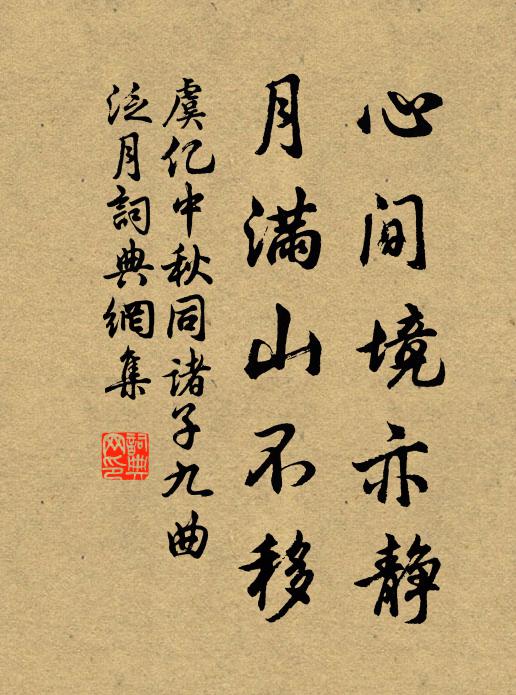 心间境亦静
月满山不移
虞仡中秋同诸子九曲
泛月词典網集
词典网印